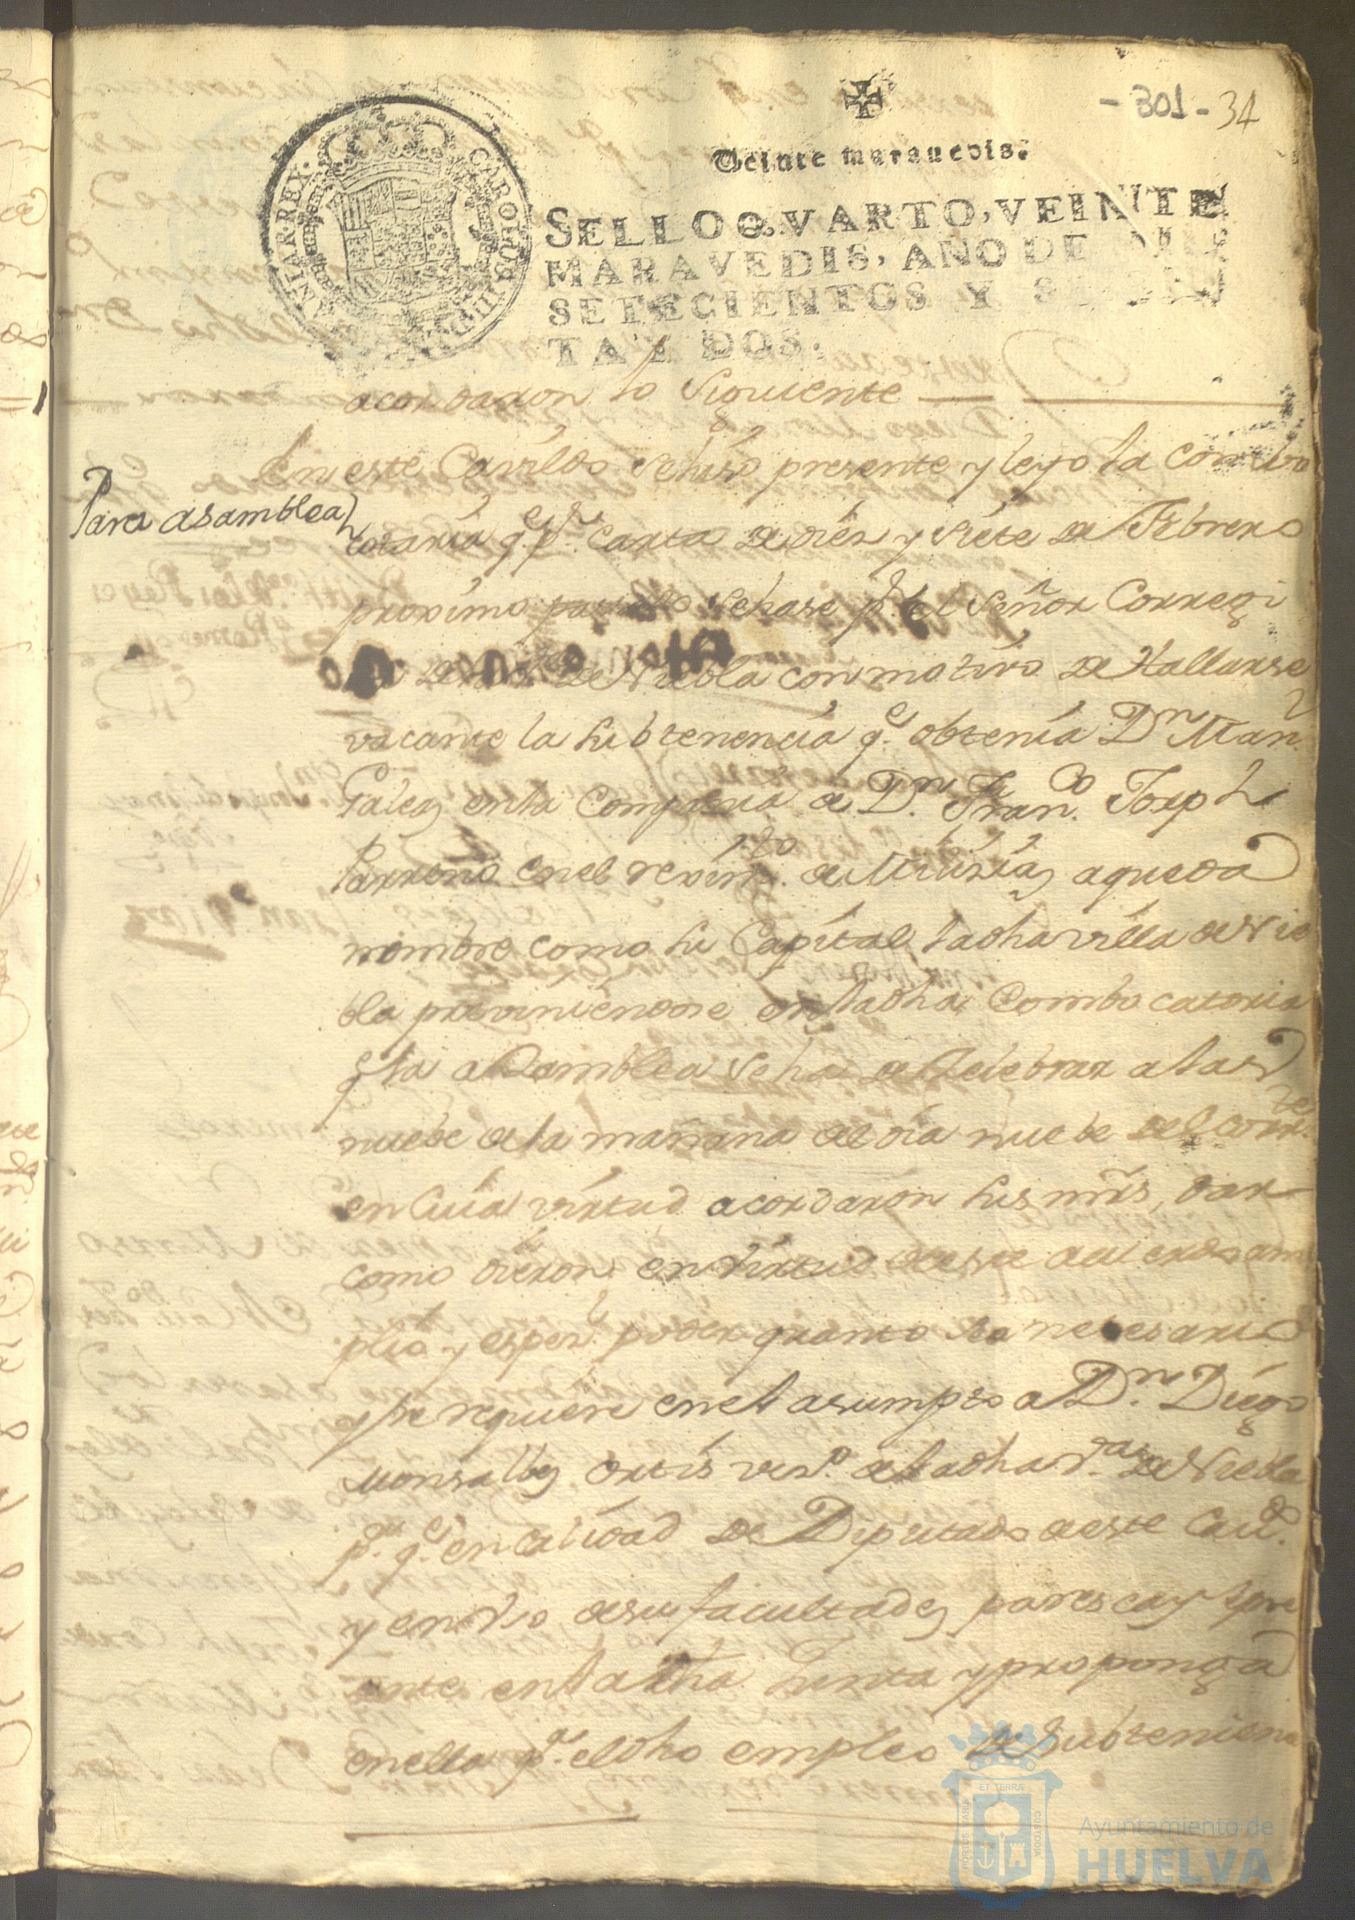 - 301 - 34
Veinte marauedis.
SELLO QVARTO, VEINTE
MARAVEDIS, AÑO DE MIL
SETECIENTOS Y SE
TA Y DOS.
CAROLUS III D G HISPANIAR REX
acordaron lo siguiente
En este Cavildo se hiso presente y leyo la combo
Para asamblea
catoria q.e p.r carta de diez y siete de Febrero
proximo pasado se hase p.r el Señor Corregi
dor de la de Niebla con motivo de Hallarse
vacante la Subtenencia q.e obtenía D.n Man.l
Galea en la Compañia de D.n Fran.co Joseph
Parreño en el reximto. de Milizias a que da
nombre como su Capital la dha villa de Nie
bla previniendose en la dha Combocatoria
q.e la asamblea se ha de Zelebrar a las
nuebe de la mañana del dia nuebe del corr.te
en cuia virtud acordaron sus mrds, dar
como dieron en virtud de este acuerdo am
plio y espez.l poder quanto es necesario
y se requiere en el asumpto a D.n Diego
Monsalbe Ortis vez.o de la dha v.a de Niebla
p.a q.e en calidad de Diputado de este Cau.do
y en vso de su facultades paresca y se pre
sente en la dha Junta y proponga
en ella p.a el dho empleo de Subtenien
ET TERRÆ
CUSTODIA
Ayuntamiento de
HUELVA